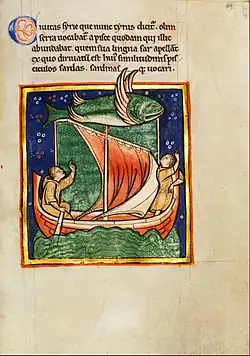 Ciuitas syrie que nunc tyrus dicit̃. olim
serra uocabat̃ a pisce quodam qui illic
abundabat. quem sua lingua sar apellant
ex quo diriuatũ est hui᷒ similitudinis pis
ciculos sardas. sardinas q; uocari